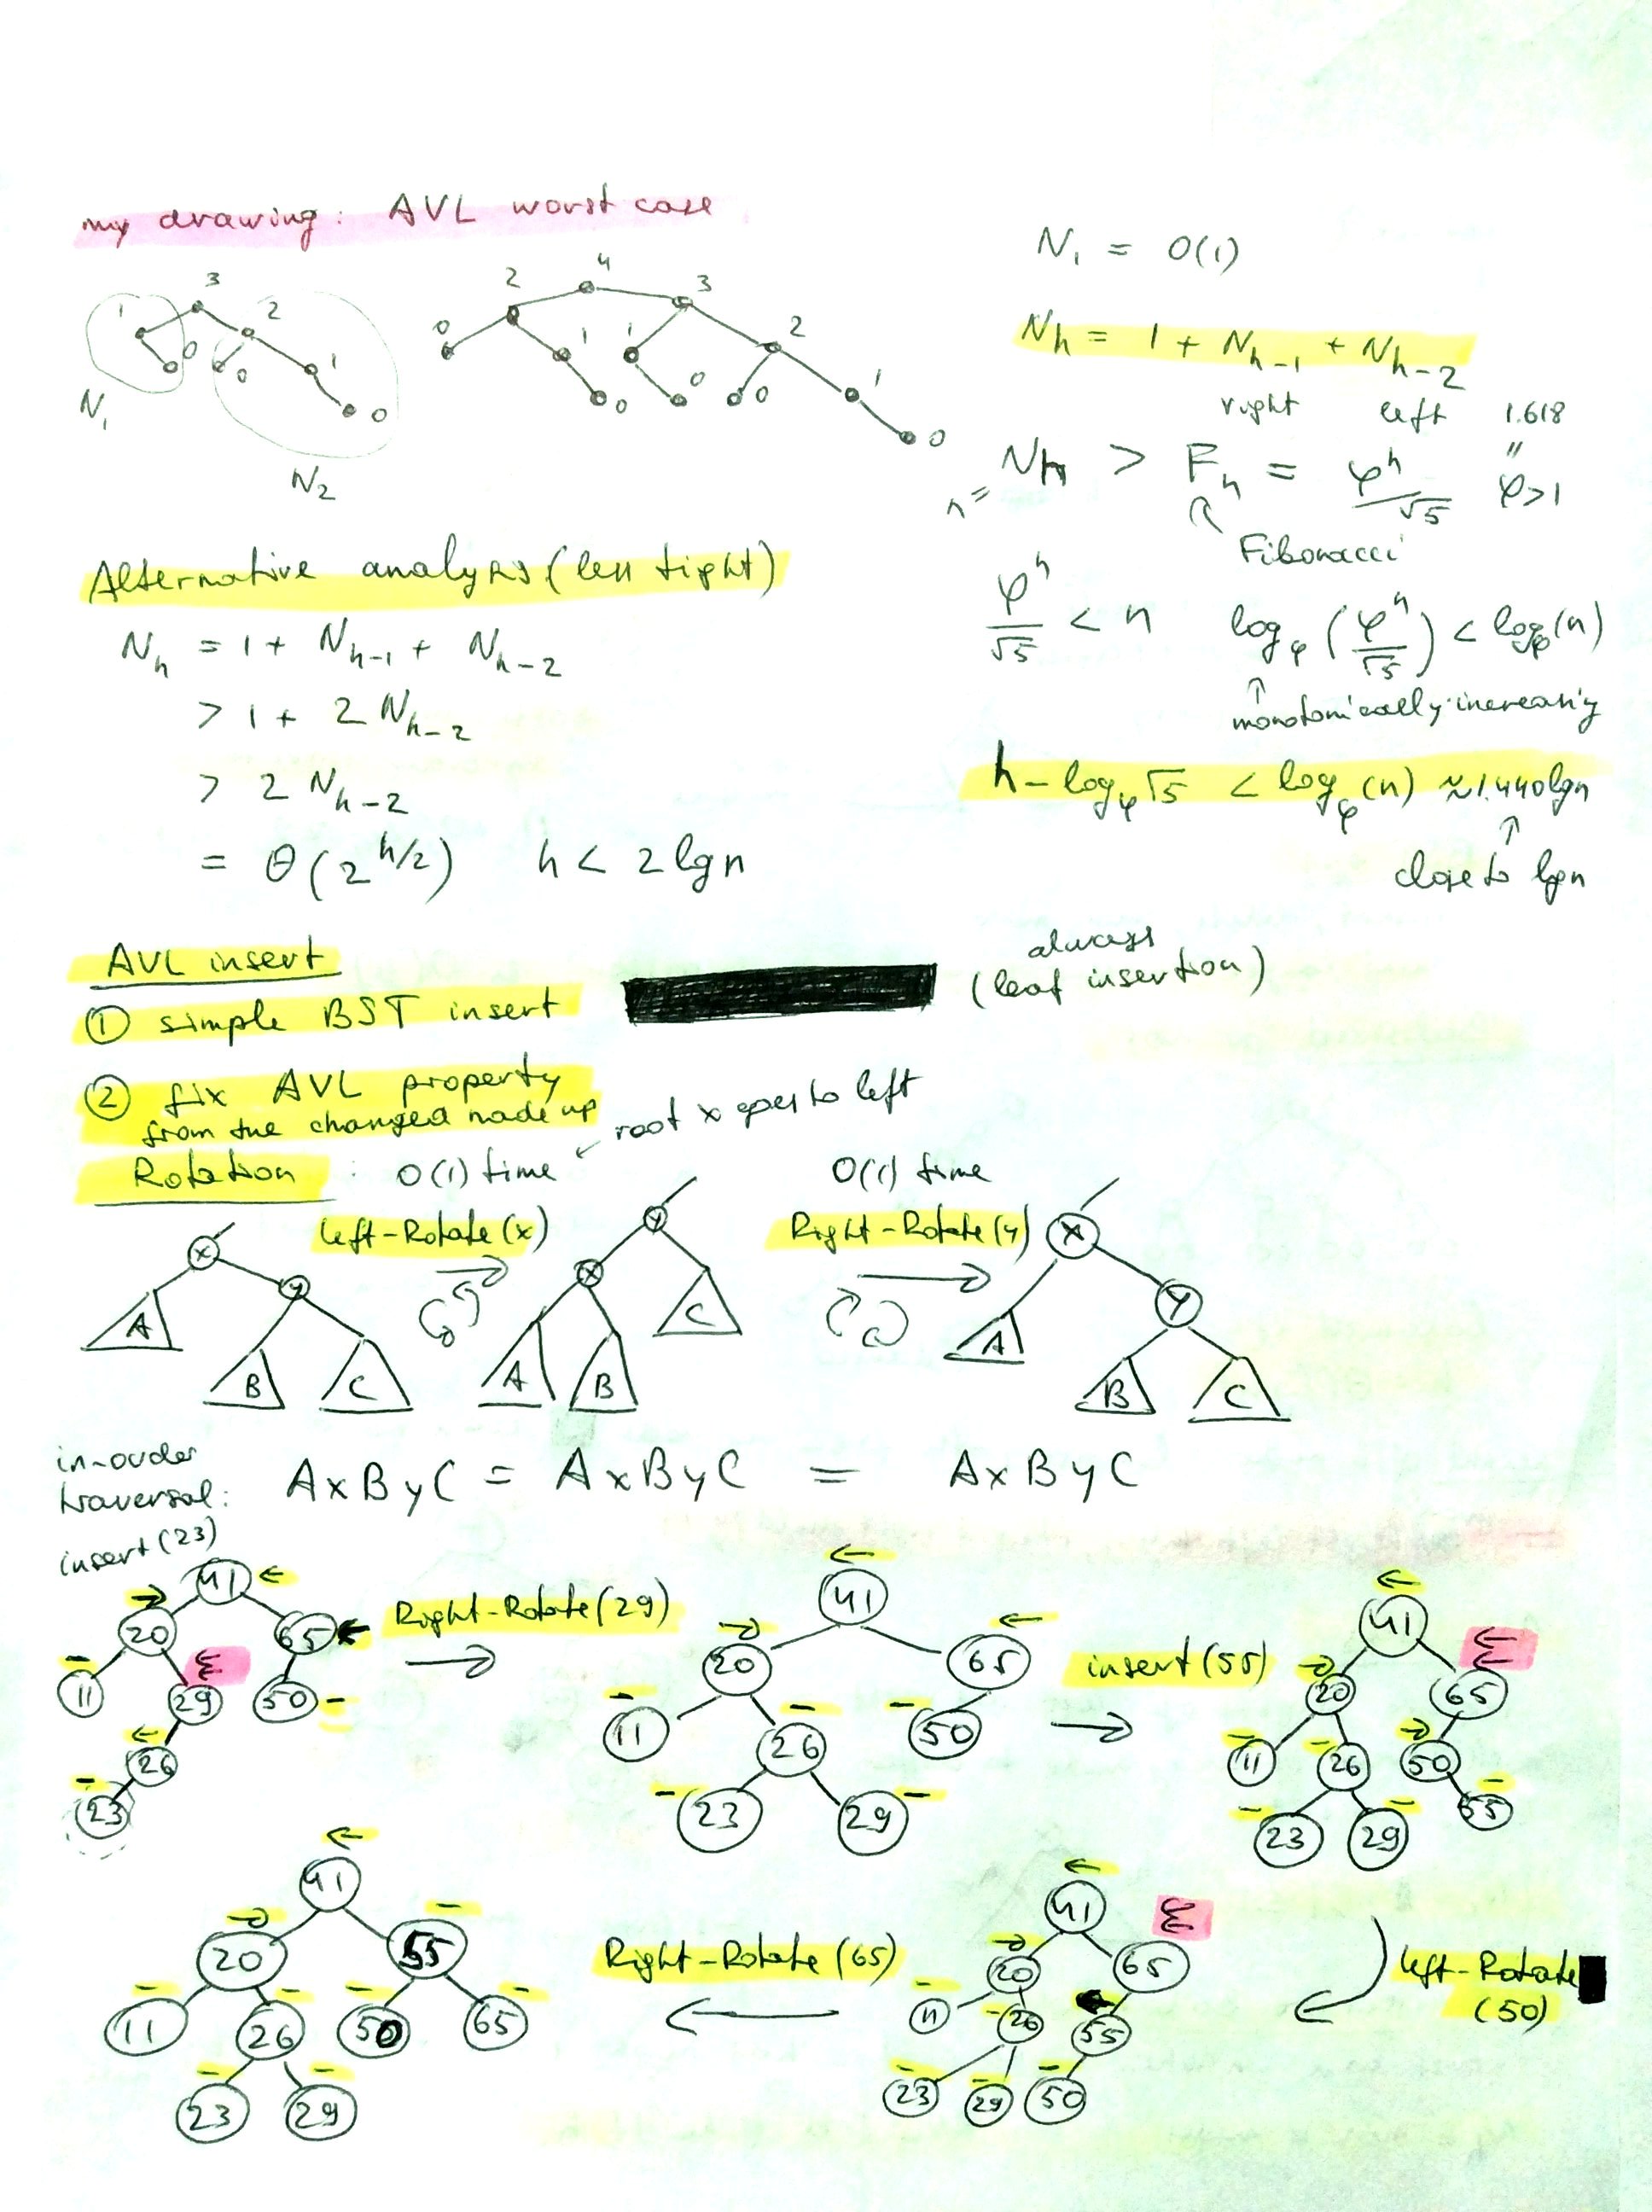 my drawing: AVL worst case
3
1
2
0
0
1
0
N₁
N₂
4
2
3
0
1
1
2
0
0
0
1
0
N₁ = O(1)
Nₕ = 1 + Nₕ₋₁ + Nₕ₋₂
right left 1.618
"
n = Nₕ > Fₕ = φʰ/√5 φ>1
Fibonacci
φʰ/√5 < n log_φ (φʰ/√5) < log_φ(n)
↑
monotonically increasing
h - log_φ √5 < log_φ (n) ≈ 1.440 lg n
↑
close to lg n
Alternative analysis (less tight)
Nₕ = 1 + Nₕ₋₁ + Nₕ₋₂
> 1 + 2 Nₕ₋₂
> 2 Nₕ₋₂
= Θ(2^(h/2)) h < 2 lg n
AVL insert
① simple BST insert
always
(leaf insertion)
② fix AVL property
from the changed node up
root x goes to left
Rotation : O(1) time
O(1) time
Left-Rotate(x)
Right-Rotate(y)
x
y
A
B
C
y
x
C
A
B
x
y
A
B
C
in-order
traversal: AxByC = AxByC = AxByC
insert(23)
41
20 65
11 29 50
26
23
Right-Rotate(29)
→
41
20 65
11 26 50
23 29
insert(55)
→
41
20 65
11 26 50
23 29 55
left-Rotate
(50)
41
20 65
11 26 55
23 29 50
Right-Rotate(65)
←
41
20 55
11 26 50 65
23 29